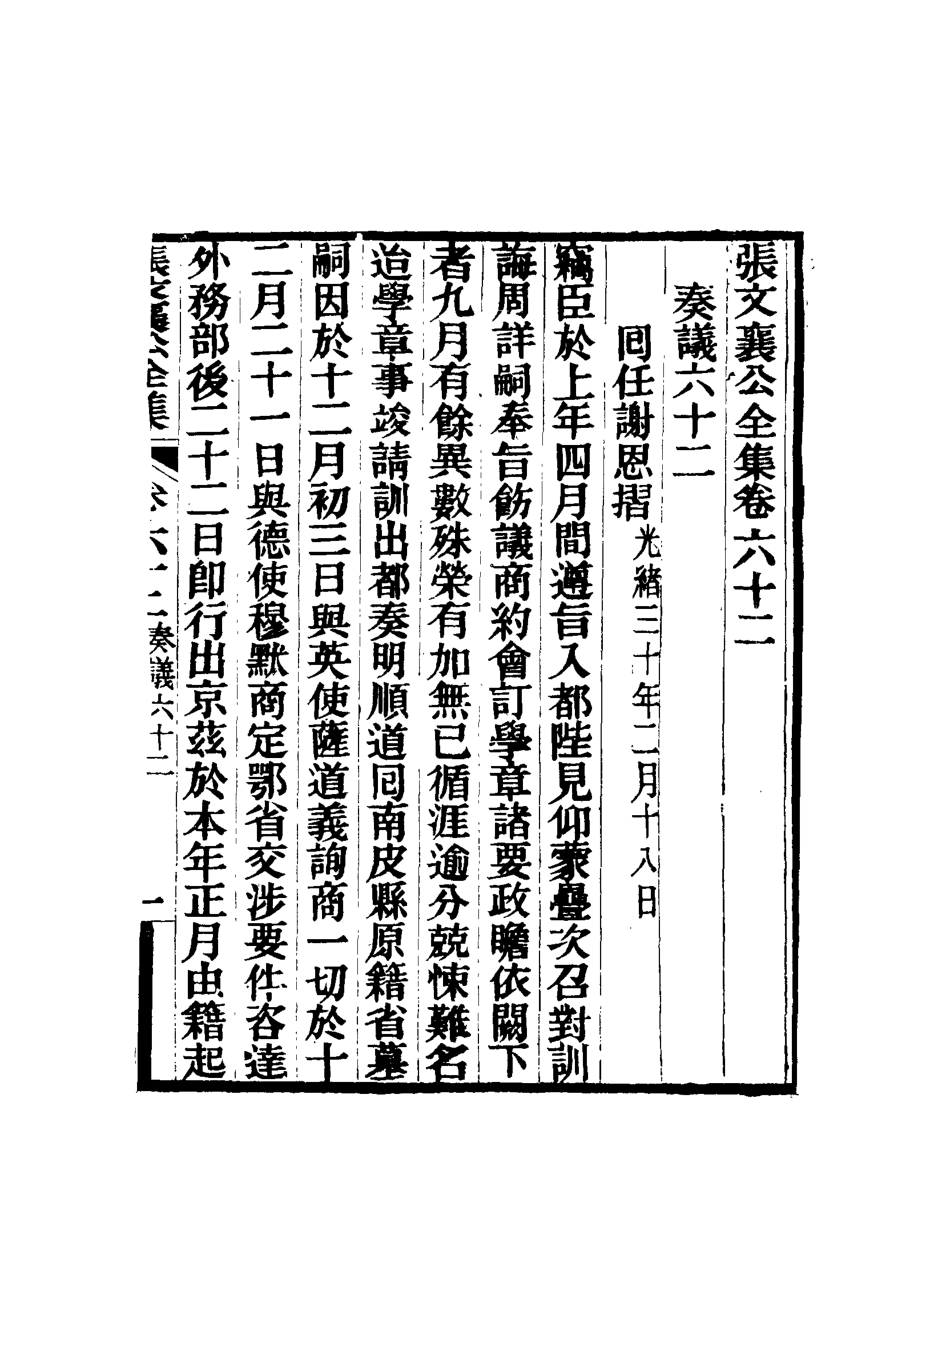 張文襄公全集卷六十二
奏議六十二
回任謝恩摺 光緒三十年二月十八日
竊臣於上年四月間遵旨入都陛見仰蒙疊次召對訓
誨周詳嗣奉旨飭議商約會訂學章諸要政瞻依闕下
者九月有餘異數殊榮有加無已循涯逾分兢悚難名
迨學章事竣請訓出都奏明順道囘南皮縣原籍省墓
嗣因於十二月初三日與英使薩道義詢商一切於十
二月二十一日與德使穆默商定鄂省交涉要件咨達
外務部後二十二日卽行出京茲於本年正月由籍起
張文襄公全集 卷六十二 奏議六十二 一